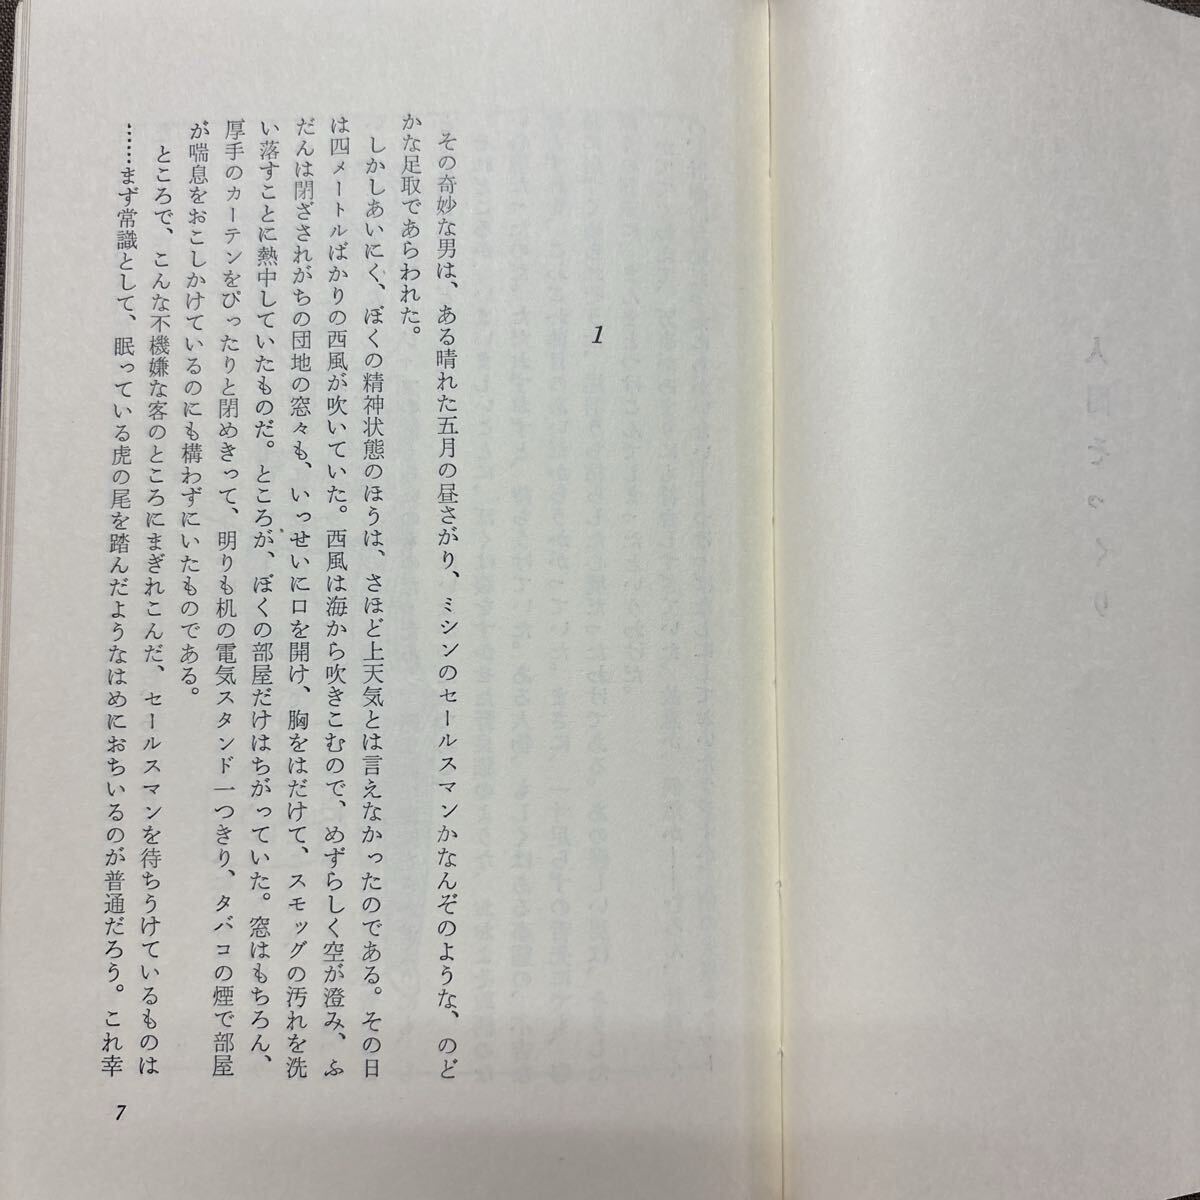 人間そっくり
1
その奇妙な男は、ある晴れた五月の昼さがり、ミシンのセールスマンかなんぞのような、のど
かな足取であらわれた。
しかしあいにく、ぼくの精神状態のほうは、さほど上天気とは言えなかったのである。その日
は四メートルばかりの西風が吹いていた。西風は海から吹きこむので、めずらしく空が澄み、ふ
だんは閉ざされがちの団地の窓々も、いっせいに口を開け、胸をはだけて、スモッグの汚れを洗
い落すことに熱中していたものだ。ところが、ぼくの部屋だけはちがっていた。窓はもちろん、
厚手のカーテンをぴったりと閉めきって、明りも机の電気スタンド一つきり、タバコの煙で部屋
が喘息をおこしかけているのにも構わずにいたものである。
ところで、こんな不機嫌な客のところにまぎれこんだ、セールスマンを待ちうけているものは
……まず常識として、眠っている虎の尾を踏んだようなはめにおちいるのが普通だろう。これ幸
7